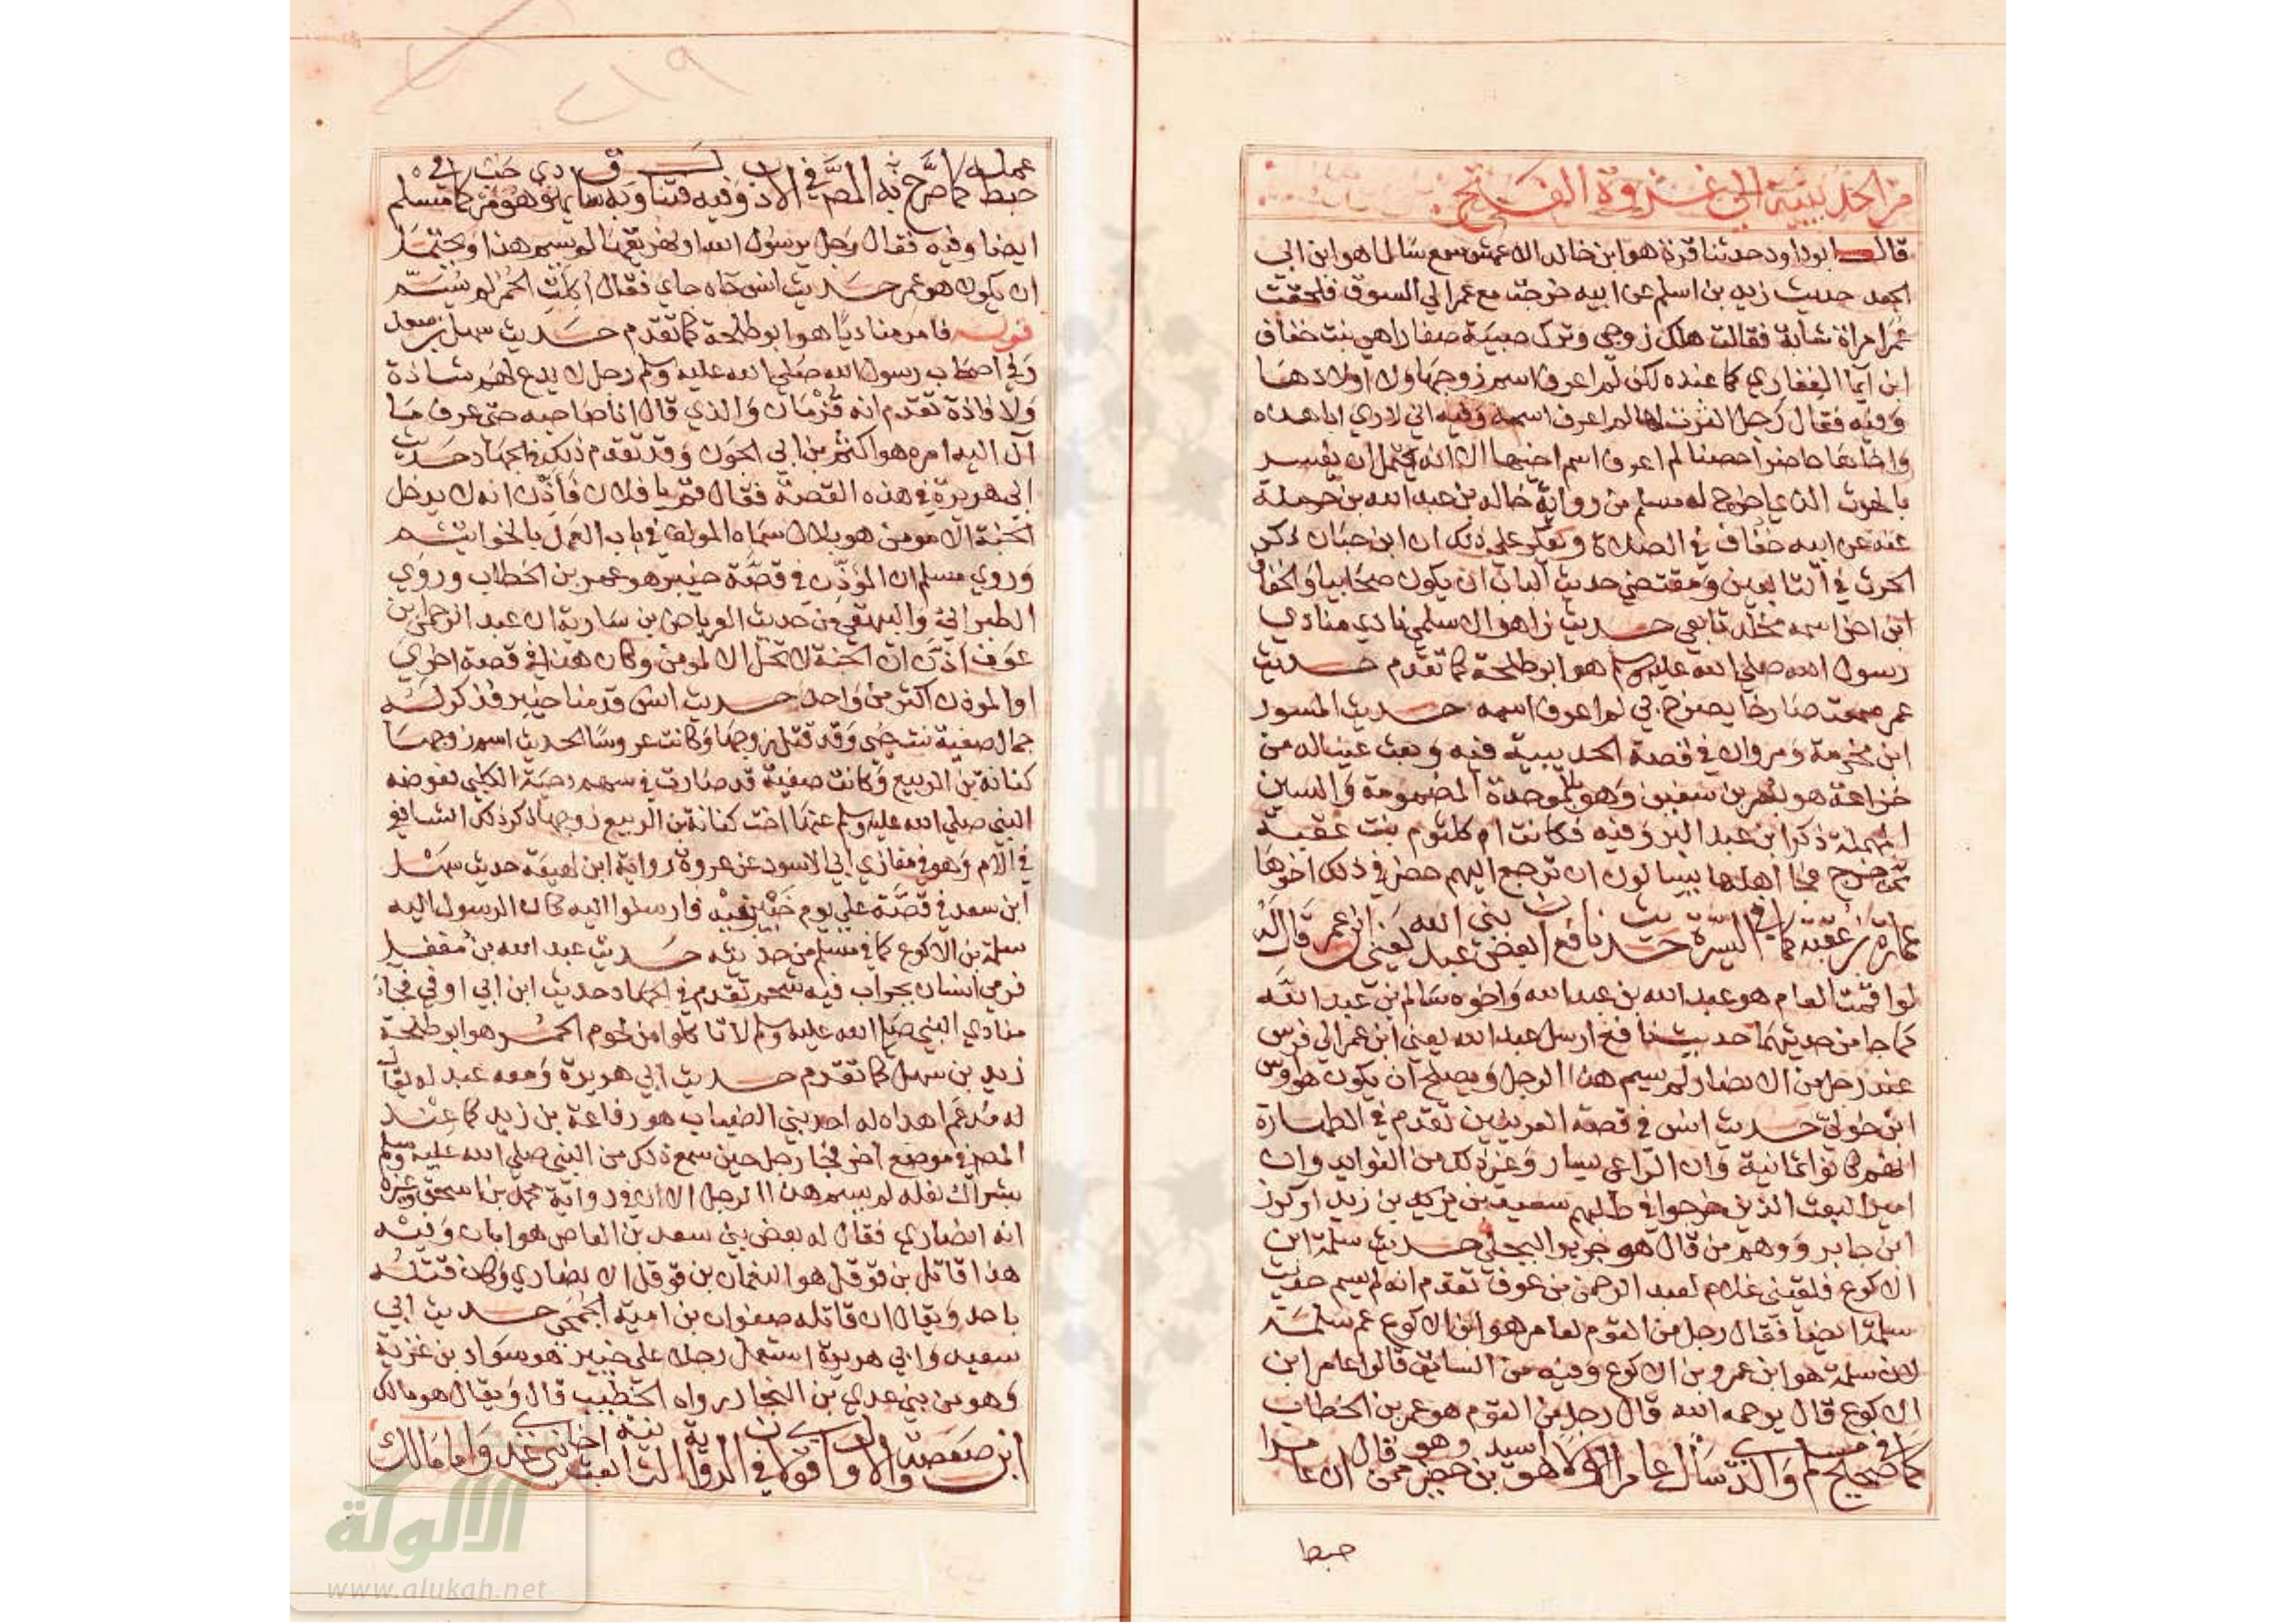 من الحديبية الي غزوة الفتح
قال ابوداود حدثنا قرة هو ابن خالد الاعمش سمع سالما هو ابن ابي
الجعد حديث زيد بن اسلم عن ابيه خرجت مع عمر الي السوق فلحقت
عمر امراة شابة فقالت هلك زوجي وترك صبية صغارا هي بنت خفاف
ابن ايما الغفاري كما عنده لكن لم اعرف اسم زوجها ولا اولادهما
وفيه فقال رجل اكثرت لها لم اعرف اسمه وفيه اني لاري ابا هذه
واخاها حاصرا حصنا لم اعرف اسم اخيها الا انه يحتمل ان يفسر
بالحرث الذي اخرج له مسلم من رواية خالد بن عبد الله بن حرملة
عنه عن ابيه خفاف في الصلاة ويعكر علي ذلك ان ابن حبان ذكر
الحرث في التابعين ومقتضي حديث الباب ان يكون صحابيا ولخفاف
ابن اخر اسمه مخلد تابعي حديث زاهر الاسلمي نادي منادي
رسول الله صلي الله عليه وسلم هو ابو طلحة كما تقدم حديث
عمر سمعت صارخا يصرخ بي لم اعرف اسمه حديث المسور
ابن مخرمة ومروان في قصة الحديبية فيه وبعث عينا له من
خزاعة هو بسر بن سفين وهو بالموحدة المضمومة والسين
المهملة ذكر ابن عبد البر وفيه فكانت ام كلثوم بنت عقبة
ممن خرج فجا اهلها يسالون ان ترجع اليهم حضر في ذلك اخوها
عمارة بن عقبة كما في السيرة حديث نافع ان بعض بني عبد الله يعني ابن عمر قال له
لو اقمت العام هو عبد الله بن عبد الله واخوه سالم بن عبد الله
كما جا من حديثهما حديث نافع ارسل عبد الله يعني ابن عمر الي فرس
عند رجل من الانصار لم يسم هذا الرجل ويصلح ان يكون هو اوس
ابن خولي حديث انس في قصة العرنيين تقدم في الطهارة
انهم كانوا ثمانية وان الراعي يسار وغير ذلك من الفوايد وان
امير البعث الذين خرجوا في طلبهم سعيد بن زيد او كرز
ابن جابر ووهم من قال هو جرير البجلي حديث سلمة ابن
الاكوع فلقيني غلام لعبد الرحمن بن عوف تقدم انه لم يسم حديث
سلمة ايضا فقال رجل من القوم لعامر هو ابن الاكوع عم سلمة
لان سلمة هو ابن عمرو بن الاكوع وفيه من السائق قالوا عامر ابن
الاكوع قال يرحمه الله قال رجل من القوم هو عمر بن الخطاب
كما في صحيح مسلم والذي سال عامرا اولا هو اسيد بن حضير وهو ممن قال ان عامرا
حبط
عمله كما صرح به المصنف في الادب وفيه
ايضا وفيه فقال رجل يرسول الله او نهريقها لم يسم هذا ويحتمل
ان يكون هو عمر حديث انس جاه جاي فقال اكلت الحمر لم يسم
قوله فامر مناديا هو ابو طلحة كما تقدم حديث سهل بن سعد
وفي اصحاب رسول الله صلي الله عليه وسلم رجل لا يدع لهم شاذة
ولا فاذة تقدم انه قزمان والذي قال انا صاحبه حتي عرف ما
آل اليه امره هو اكثم بن ابي الجون وقد تقدم ذلك في الجهاد حديث
ابي هريرة في هذه القصة فقال قم يا فلان فاذن انه لا يدخل
الجنة الا مومن هو بلال سماه المولف في باب العمل بالخواتيم
وروي مسلم ان المؤذن في قصة خيبر هو عمر بن الخطاب وروي
الطبراني والبيهقي من حديث العرباض بن سارية ان عبد الرحمن بن
عوف اذن ان الجنة لا تحل الا لمومن وكان هذا في قصة اخري
او الموذن اكثر من واحد حديث انس قدمنا خيبر فذكر له
جمال صفية بنت حيي وقد قتل زوجها وكانت عروسا الحديث اسم زوجها
كنانة بن الربيع وكانت صفية قد صارت في سهم دحية الكلبي فعوضه
النبي صلي الله عليه وسلم عنها اخت كنانة بن الربيع زوجها ذكر ذلك الشافعي
في الام وهو في مغازي ابي الاسود عن عروة رواية ابن لهيعة حديث سهل
ابن سعد في قصة علي يوم خيبر فيه فارسلوا اليه كان الرسول اليه
سلمة بن الاكوع كما في مسلم من حديثه حديث عبد الله بن مغفل
فرمي انسان بجراب فيه شحم تقدم في الجهاد حديث ابن ابي اوفي فجا
منادي النبي صلي الله عليه وسلم لا تاكلوا من لحوم الحمر هو ابو طلحة
زيد بن سهل كما تقدم حديث ابي هريرة ومعه عبد له يقال
له مدعم اهداه له احد بني الضباب هو رفاعة بن زيد كما عند
المصنف في موضع آخر فجا رجل حين سمع ذلك من النبي صلي الله عليه وسلم
بشراك نعله لم يسم هذا الرجل الا ان في رواية محمد بن اسحق وغيره
انه انصاري فقال له بعض بني سعيد بن العاص هو ابان وفيه
هذا قاتل بن قوقل هو النعمان بن قوقل الانصاري وكان قتله
باحد ويقال ان قاتله صفوان بن امية الجمحي حديث ابي
سعيد وابي هريرة استعمل رجلا علي خيبر هو سواد بن غزية
وهو من بني عدي بن النجار رواه الخطيب قال ويقال هو مالك
ابن صعصعة والاول اقوي لان في الرواية الثانية بعث اخا بني عدي واما مالك
الالوكة
www.alukah.net